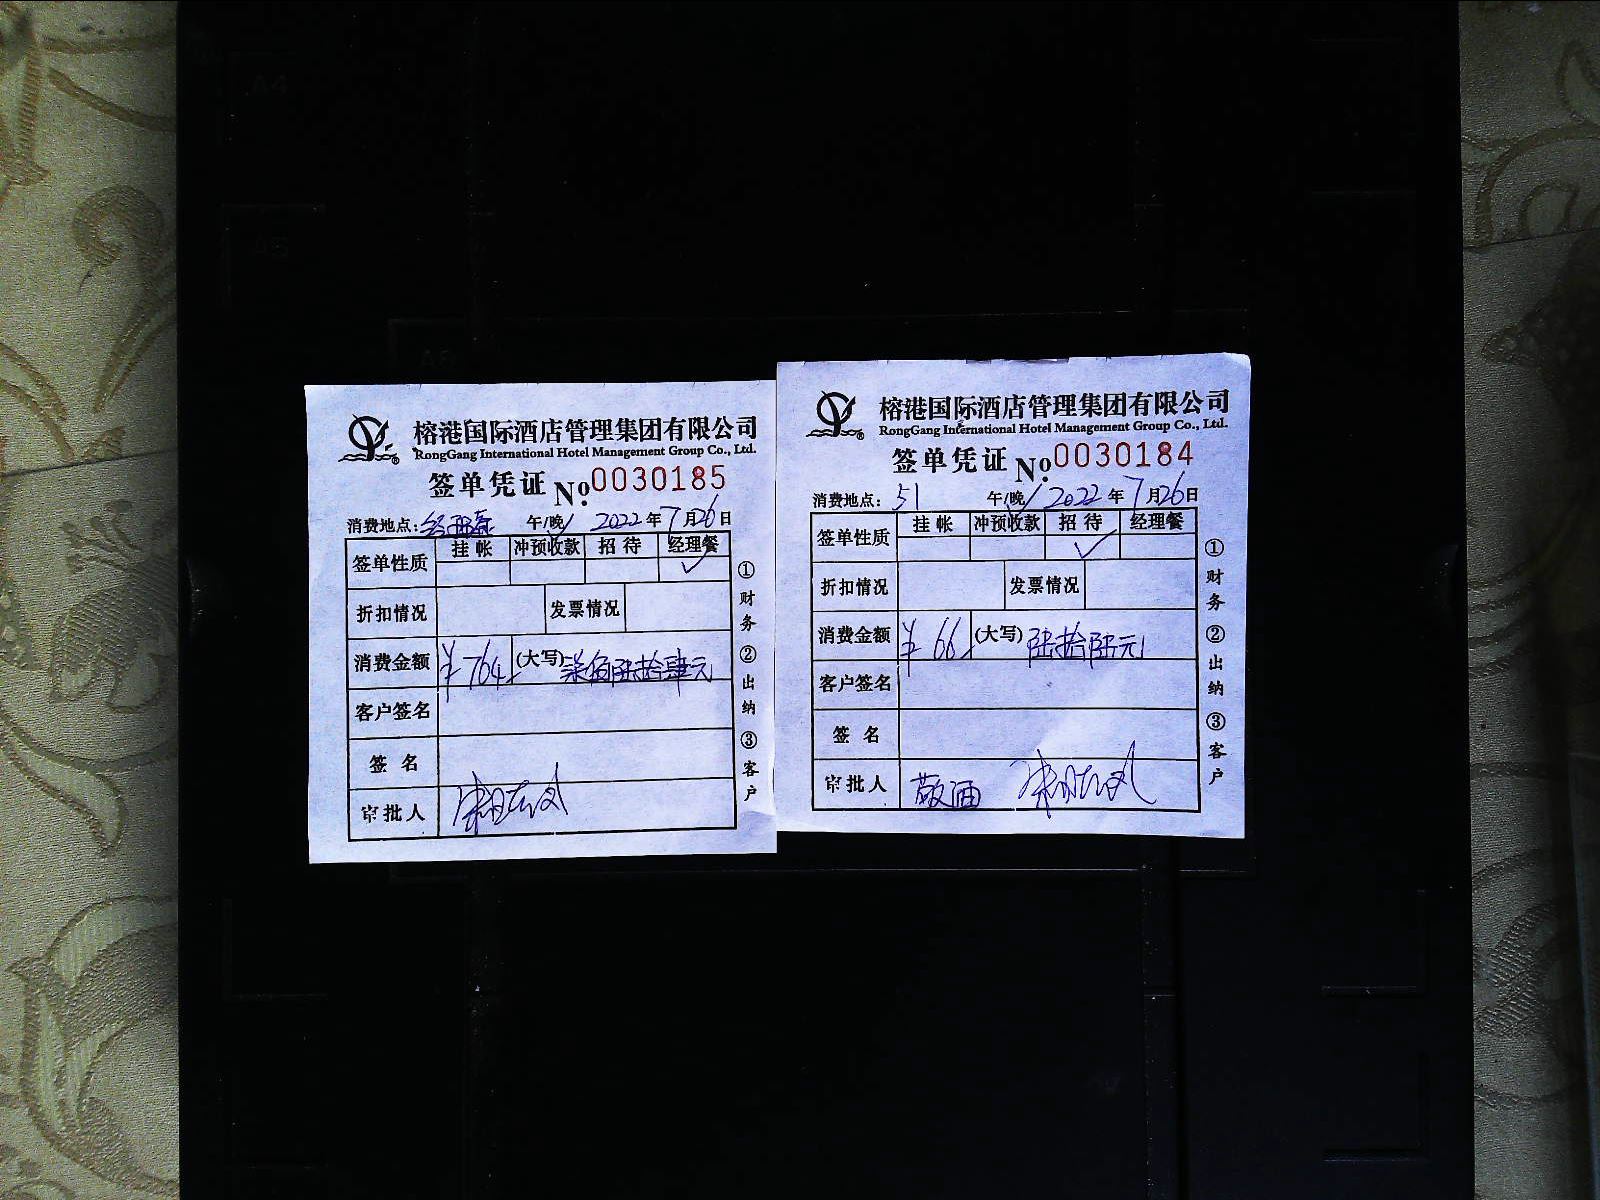 榕港国际酒店管理集团有限公司
RongGang International Hotel Management Group Co., Ltd.
签单凭证 No.0030185
消费地点: 午/晚 2022年7月26日
签单性质 挂帐 冲预收款 招待 经理餐
✓
折扣情况 发票情况
消费金额 ¥764 (大写) 柒佰陆拾肆元
客户签名
签名
审批人
①财务②出纳③客户
榕港国际酒店管理集团有限公司
RongGang International Hotel Management Group Co., Ltd.
签单凭证 No.0030184
消费地点: 51 午/晚 2022年7月26日
签单性质 挂帐 冲预收款 招待 经理餐
✓
折扣情况 发票情况
消费金额 ¥66 (大写) 陆拾陆元
客户签名
签名
审批人 敬酒
①财务②出纳③客户
A4
A5